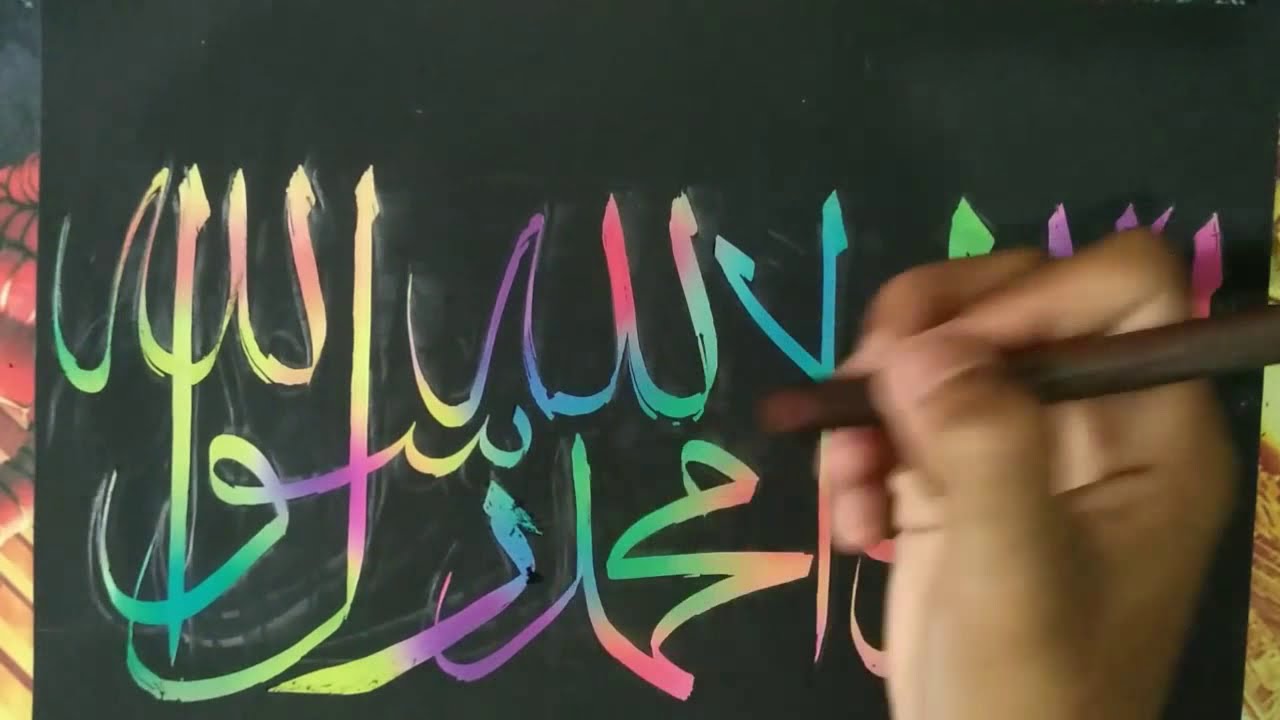 الا الله محمد رسول الله